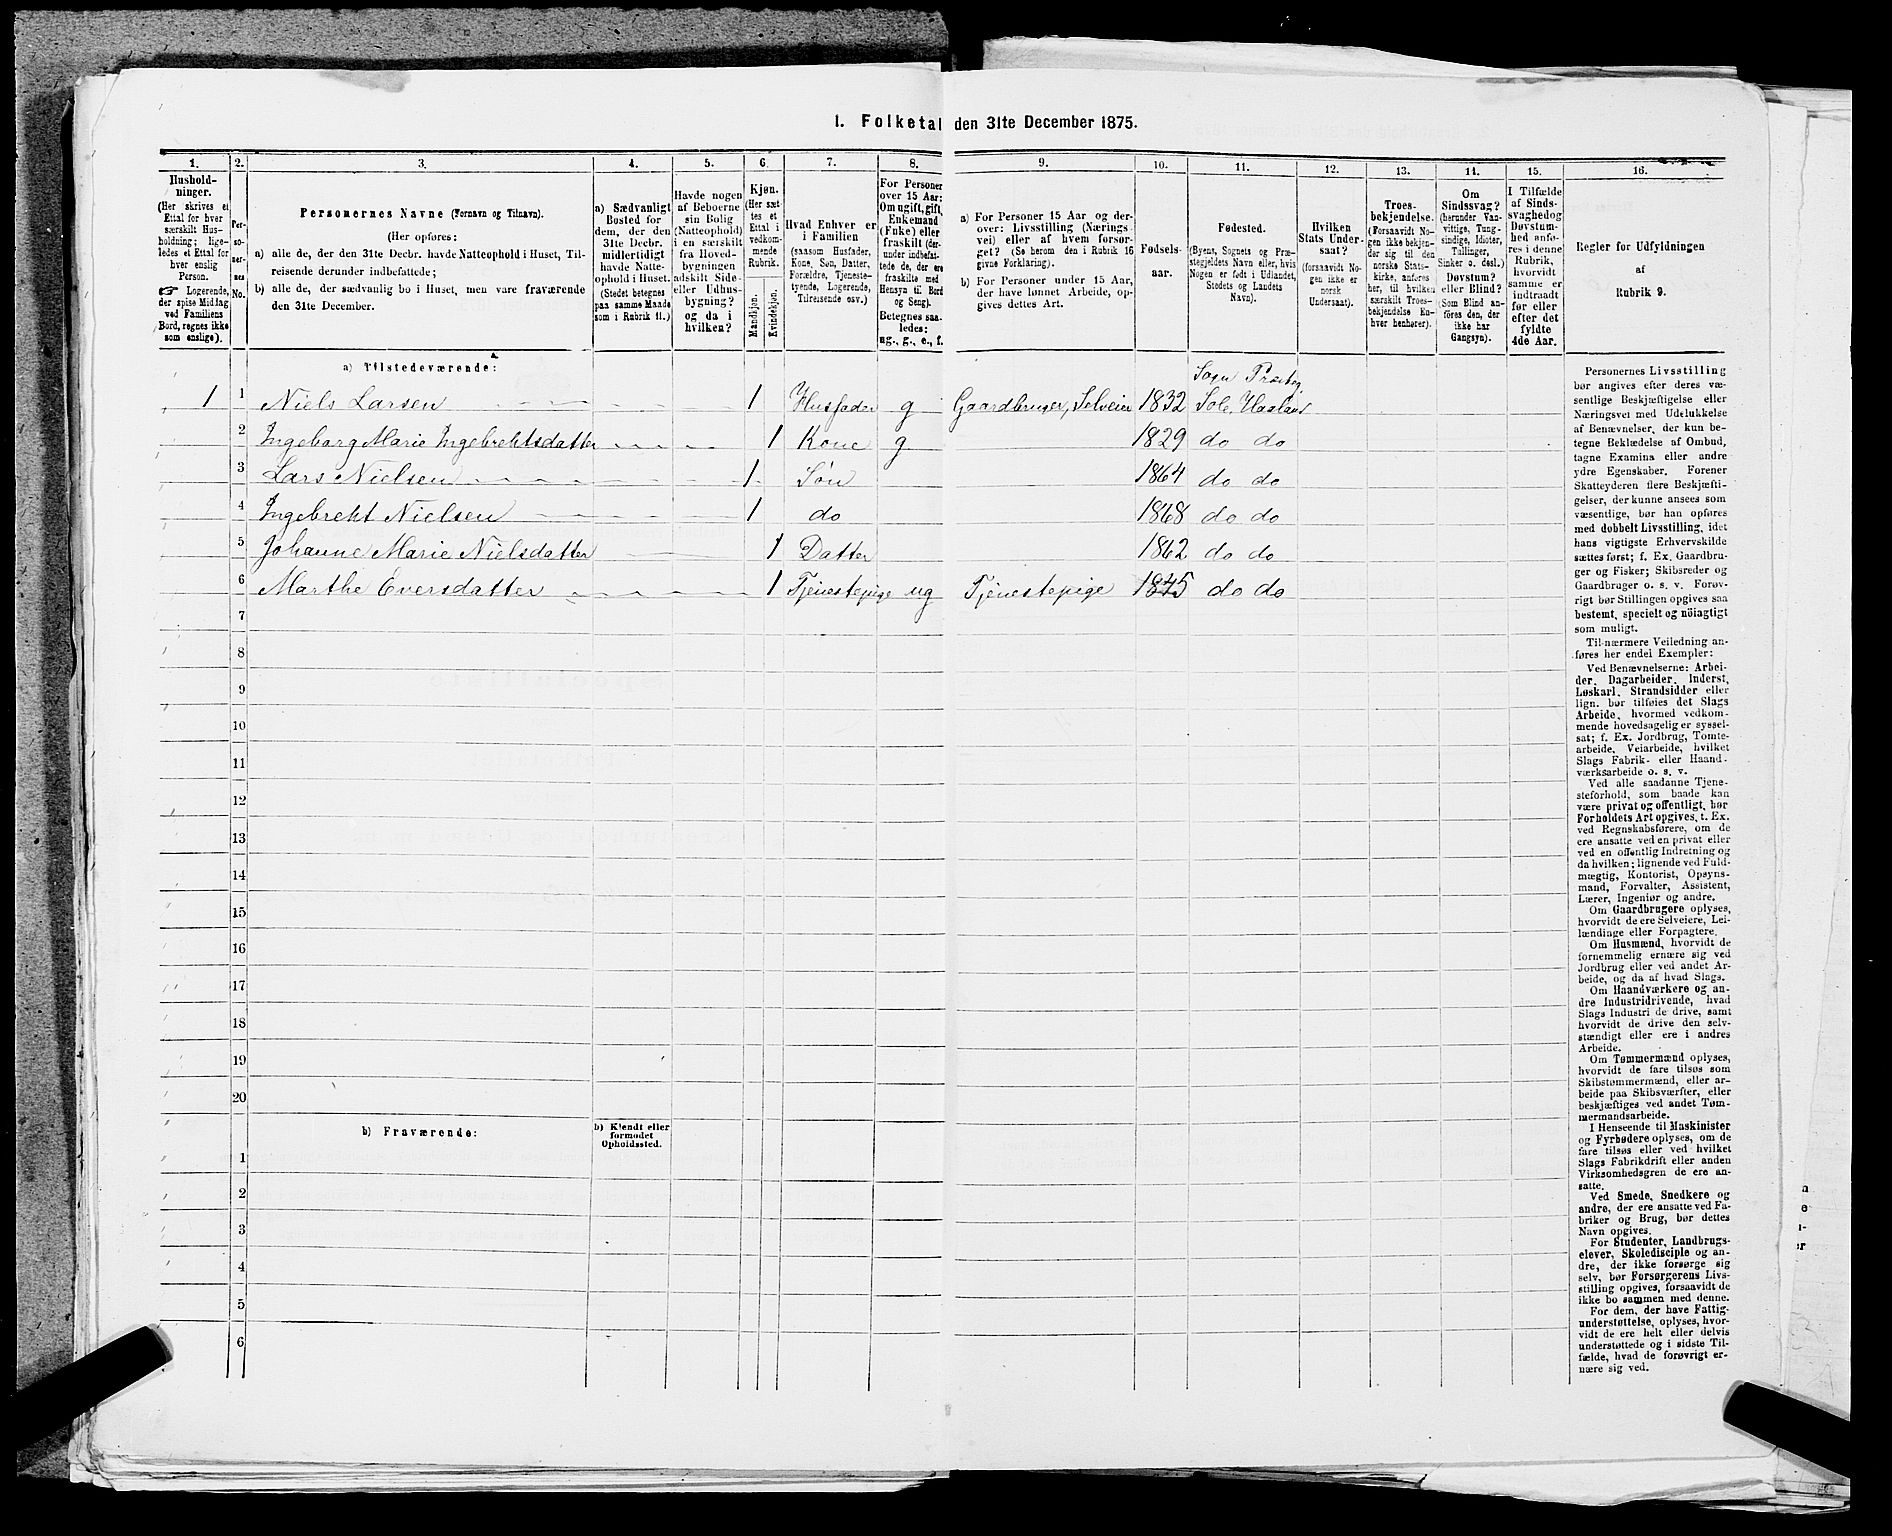 1. Folketal den 31te December 1875.
1. 2. 3. 4. 5. 6. 7. 8. 9. 10. 11. 12. 13. 14. 15. 16.
Hushold-
ninger.
(Her skrives et
Ettal for hver
særskilt Hus-
holdning; lige-
ledes et Ettal for
hver enslig
Person.
☞ Logerende,
der spise Middag
ved Familiens
Bord, regnes ikke
som enslige).
Per-
so-
ner-
nes
No.
Personernes Navne (Fornavn og Tilnavn).
(Her opføres:
a) alle de, der den 31te Decbr. havde Natteophold i Huset, Til-
reisende derunder indbefattede;
b) alle de, der sædvanlig bo i Huset, men vare fraværende
den 31te December.
a) Sædvanligt
Bosted for
dem, der den
31te Decbr.
midlertidigt
havde Natte-
ophold i Huset.
(Stedet betegnes
paa samme Maade
som i Rubrik 11.)
Havde nogen
af Beboerne
sin Bolig
(Natteophold)
i en særskilt
fra Hoved-
bygningen
adskilt Side-
eller Udhus-
bygning?
og da i
hvilken?
Kjøn.
(Her sæt-
tes et
Ettal i
vedkom-
mende
Rubrik.
Mandkjøn.
Kvindekjøn.
Hvad Enhver er
i Familien
(saasom Husfader,
Kone, Søn, Datter,
Forældre, Tjeneste-
tyende, Logerende,
Tilreisende osv.)
For Personer
over 15 Aar:
Om ugift, gift,
Enkemand
(Enke) eller
fraskilt (der-
under indbefat-
tede de, der ere
fraskilte med
Hensyn til Bord
og Seng).
Betegnes saa-
ledes:
ug., g., e., f.
a) For Personer 15 Aar og der-
over: Livsstilling (Nærings-
vei) eller af hvem forsør-
get? (Se herom den i Rubrik 16
givne Forklaring).
b) For Personer under 15 Aar,
der have lønnet Arbeide, op-
gives dettes Art.
Fødsels-
aar.
Fødested.
(Byens, Sognets og Præ-
stegjeldets Navn eller, hvis
Nogen er født i Udlandet,
Stedets og Landets
Navn).
Hvilken
Stats Under-
saat?
(forsaavidt No-
gen ikke er
norsk
Undersaat).
Troes-
bekjendelse.
(Forsaavidt No-
gen ikke bekjen-
der sig til den
norske Stats-
kirke, anføres
her, til hvilken
særskilt Troes-
bekjendelse En-
hver henhører).
Om
Sindssvag?
(herunder Van-
vittige, Tung-
sindige, Idioter,
Tullinger,
Sinker o. desl.)
Døvstum?
eller Blind?
(Som Blind an-
føres den, der
ikke har
Gangsyn).
I Tilfælde
af Sinds-
svaghed og
Døvstum-
hed anfø-
res i denne
Rubrik,
hvorvidt
samme er
indtraadt
før eller
efter det
fyldte
4de Aar.
Regler for Udfyldningen
af
Rubrik 9.
a) Tilstedeværende:
Sogn Præsteg.
1 1 Niels Larsen 1 Husfader g Gaardbruger, Selveier 1832 Sole, Haaland
2 Ingeborg Marie Ingebrektsdatter 1 Kone g 1829 do do
3 Lars Nielsen 1 Søn 1864 do do
4 Ingebrekt Nielsen 1 do 1868 do do
5 Johanne Marie Nielsdatter 1 Datter 1862 do do
6 Marthe Eversdatter 1 Tjenestepige ug Tjenestepige 1845 do do
7
8
9
10
11
12
13
14
15
16
17
18
19
20
b) Fraværende:
b) Kjendt eller
formodet
Opholdssted.
1
2
3
4
5
6
Personernes Livsstilling
bør angives efter deres væ-
sentlige Beskjæftigelse eller
Næringsvei med Udelukkelse
af Benævnelser, der kun be-
tegne Beklædelse af Ombud,
tagne Examina eller andre
ydre Egenskaber. Forener
Skatteyderen flere Beskjæfti-
gelser, der kunne ansees som
væsentlige, bør han opføres
med dobbelt Livsstilling, idet
hans vigtigste Erhvervskilde
sættes først; f. Ex. Gaardbru-
ger og Fisker; Skibsreder og
Gaardbruger o. s. v. Forøv-
rigt bør Stillingen opgives saa
bestemt, specielt og nöiagtigt
som muligt.
Til nærmere Veiledning an-
føres her endel Exempler:
Ved Benævnelserne: Arbei-
der, Dagarbeider, Inderst,
Løskarl, Strandsidder eller
lign. bør tilføies det Slags
Arbeide, hvormed vedkom-
mende hovedsagelig er syssel-
sat; f. Ex. Jordbrug, Tomte-
arbeide, Veiarbeide, hvilket
Slags Fabrik- eller Haand-
værksarbeide o. s. v.
Ved alle saadanne Tjene-
steforhold, som baade kan
være privat og offentligt, bør
Forholdets Art opgives, t. Ex.
ved Regnskabsførere, om de
ere ansatte ved en privat eller
ved en offentlig Indretning og
da hvilken; lignende ved Fuld-
mægtig, Kontorist, Opsyns-
mand, Forvalter, Assistent,
Lærer, Ingeniør og andre.
Om Gaardbrugere oplyses,
hvorvidt de ere Selveiere, Lei-
lændinge eller Forpagtere.
Om Husmænd, hvorvidt de
fornemmelig ernære sig ved
Jordbrug eller ved andet Ar-
beide, og da af hvad Slags.
Om Haandværkere og an-
dre Industridrivende, hvad
Slags Industri de drive, samt
hvorvidt de drive den selv-
stændigt eller ere i andres
Arbeide.
Om Tømmermænd oplyses,
hvorvidt de fare tilsøs som
Skibstømmermænd, eller ar-
beide paa Skibsværfter, eller
beskjæftiges ved andet Tøm-
mermandsarbeide.
I Henseende til Maskinister
og Fyrbødere oplyses, om de
fare tilsøs eller ved hvilket
Slags Fabrikdrift eller anden
Virksomhedsgren de ere an-
satte.
Ved Smede, Snedkere og
andre, der ere ansatte ved Fa-
briker og Brug, bør dettes
Navn opgives.
For Studenter, Landbrugs-
elever, Skoledisciple og an-
dre, der ikke forsørge sig
selv, bør Forsørgerens Livs-
stilling opgives, forsaavidt de
ikke bo sammen med denne.
For dem, der have Fattig-
understøttelse, oplyses, hvor-
vidt de ere helt eller delvis
understøttede og i sidste Til-
fælde, hvad de forøvrigt er-
nære sig ved.